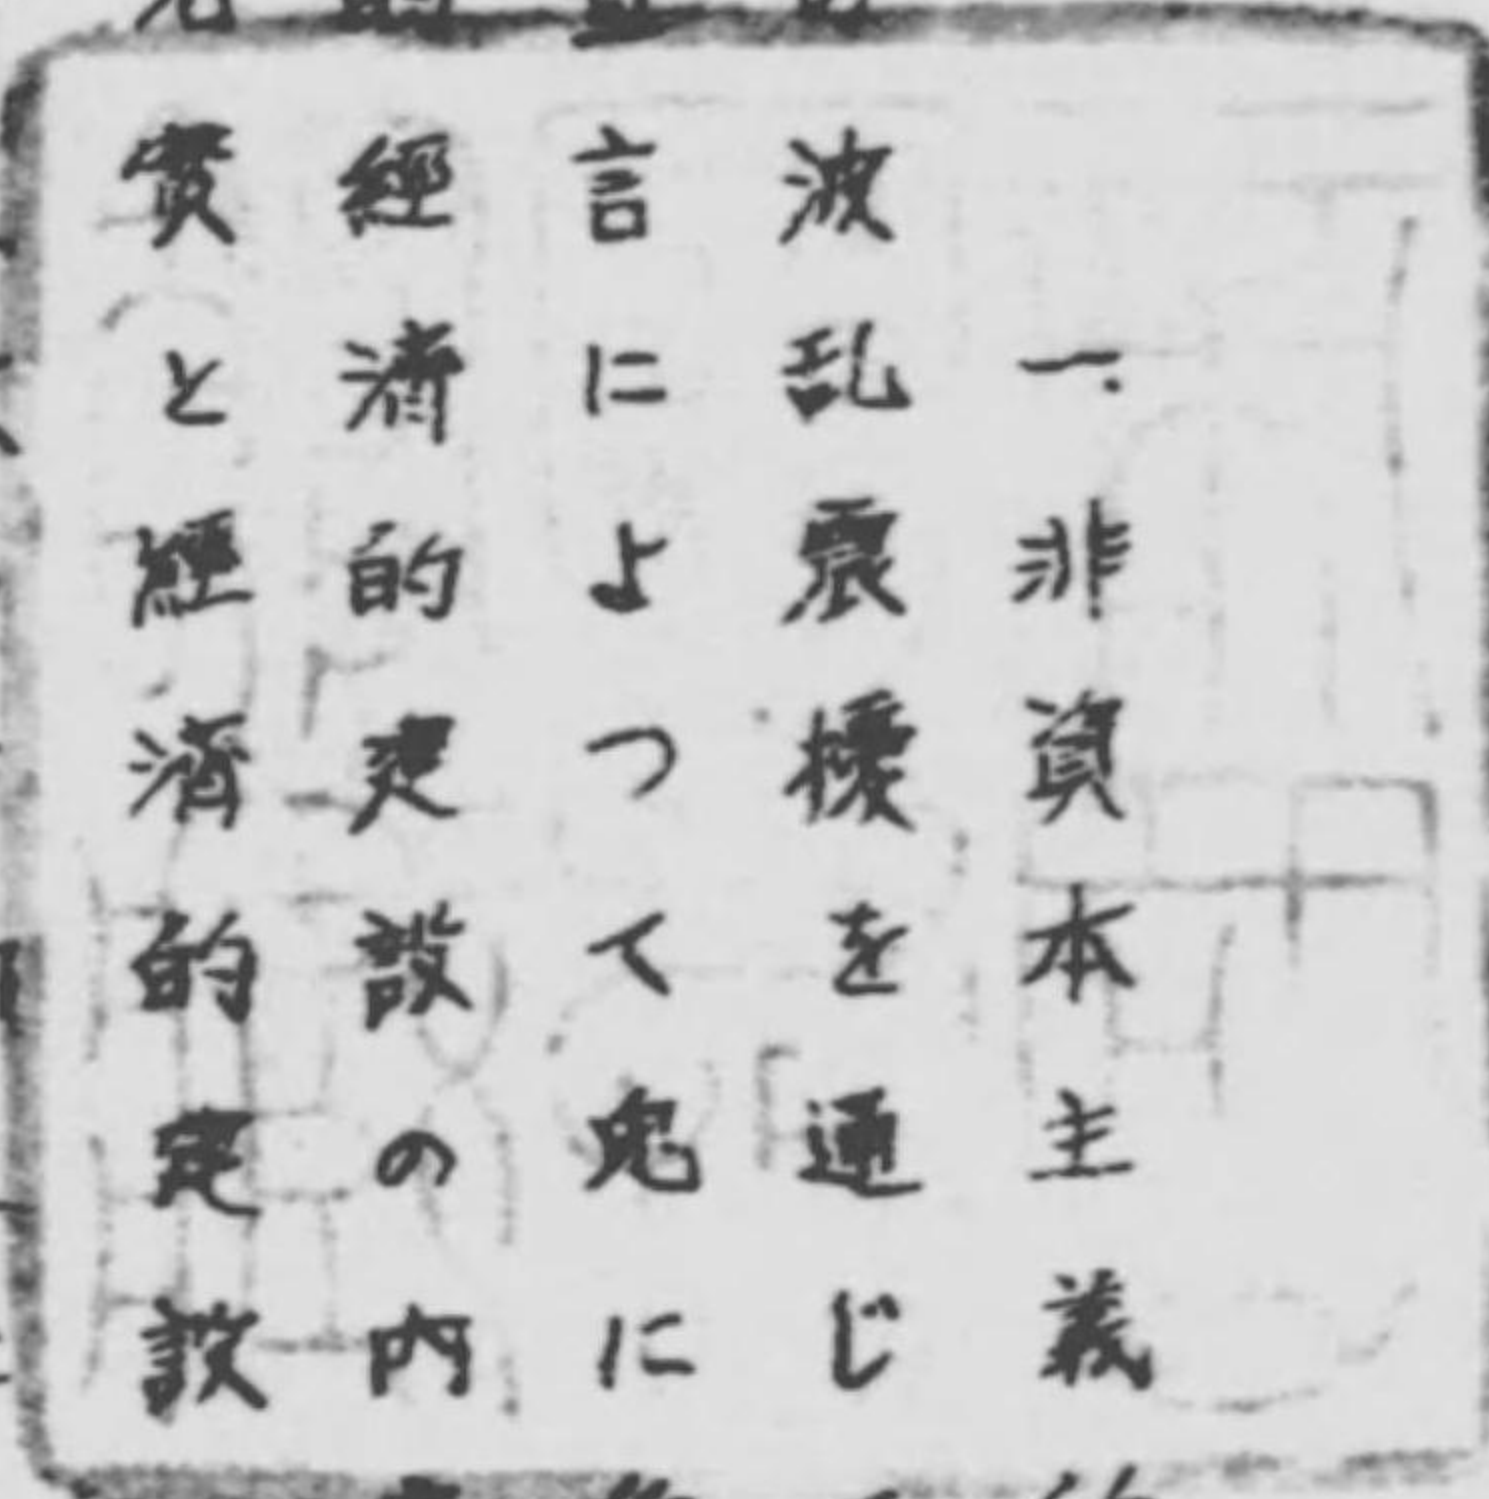 一.非資本主義
波乱震撼を通じ
言によつて鬼に
經濟的建設の内
實と經濟的建設